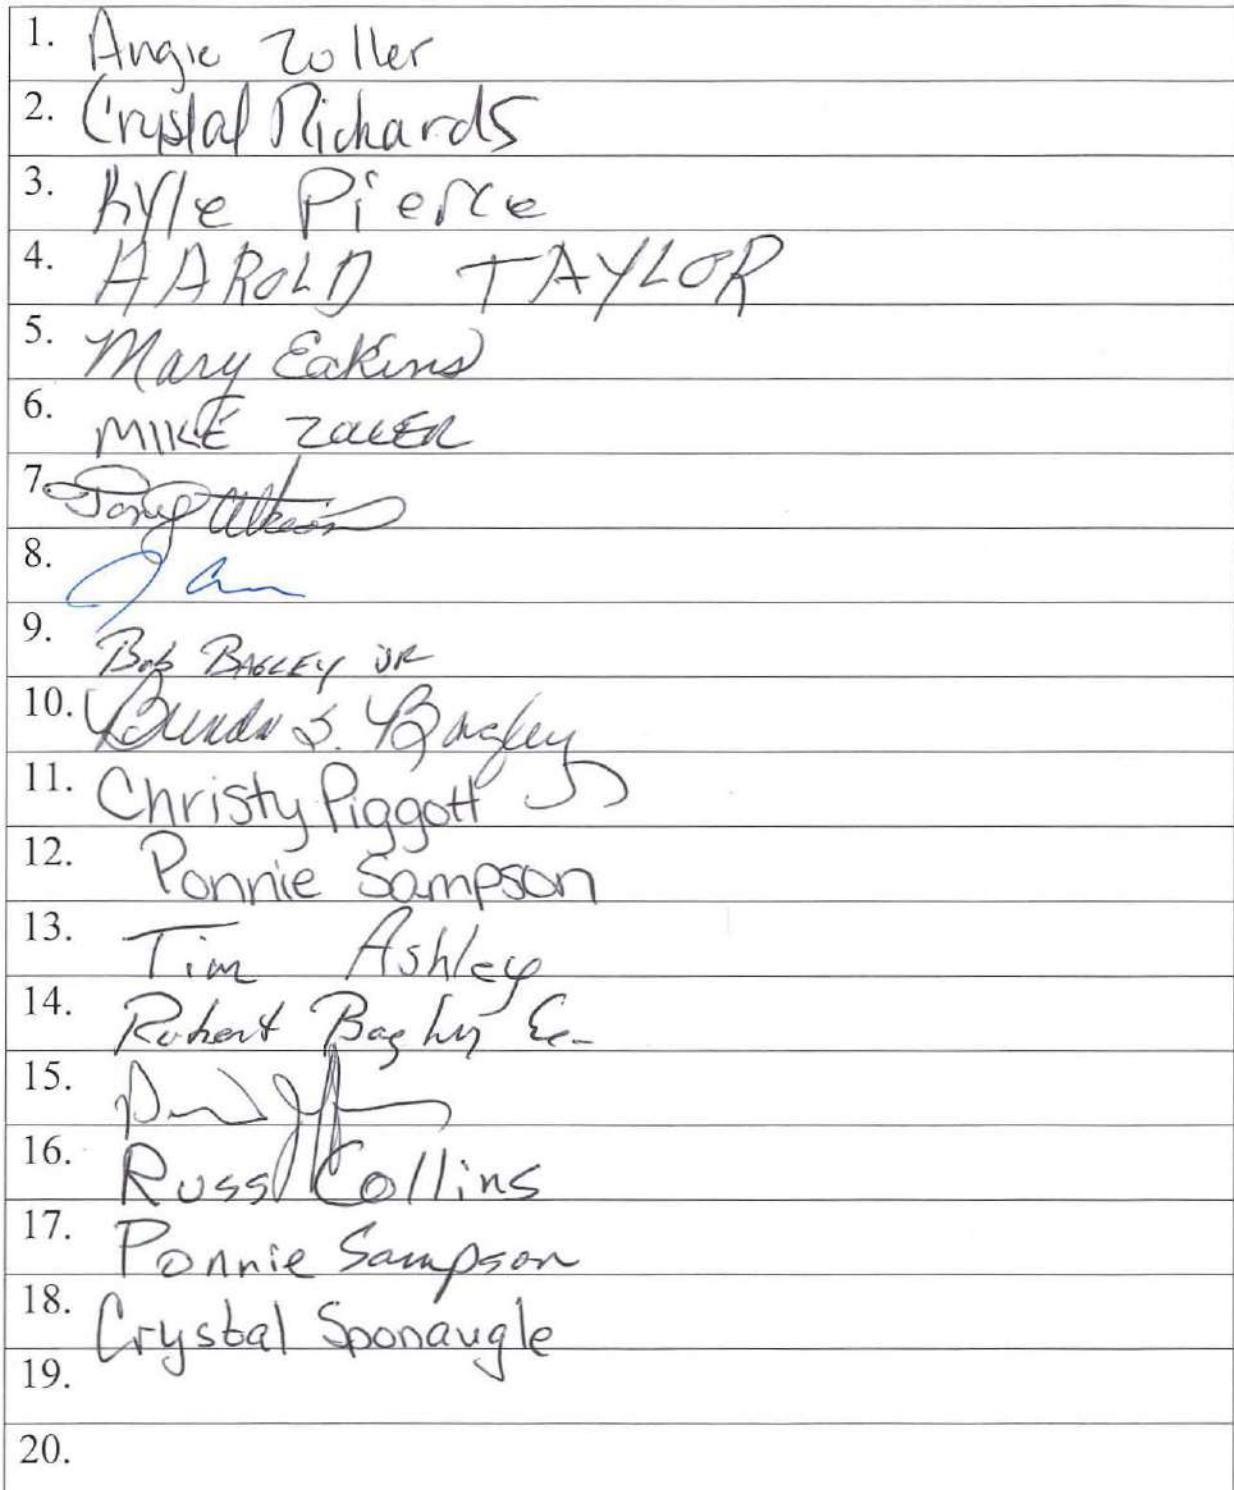 1. Angie Zoller
2. Crystal Richards
3. Kyle Pierce
4. HAROLD TAYLOR
5. Mary Eakins
6. MIKE ZOLLER
7. Tony Atkins
8.
9. Bob BAGLEY JR
10. Brenda S. Bagley
11. Christy Piggott
12. Ponnie Sampson
13. Tim Ashley
14. Robert Bagley Sr.
15.
16. Russ Collins
17. Ponnie Sampson
18. Crystal Sponaugle
19.
20.